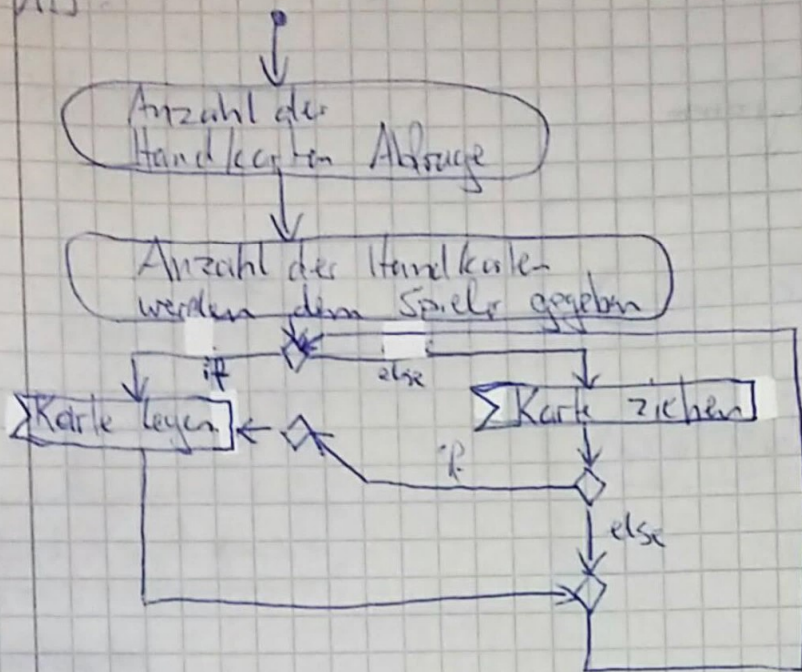 Anzahl der
Handkarten Abfrage
Anzahl der Handkarten
werden dem Spieler gegeben
if
else
Karte legen
Karte ziehen
if
else